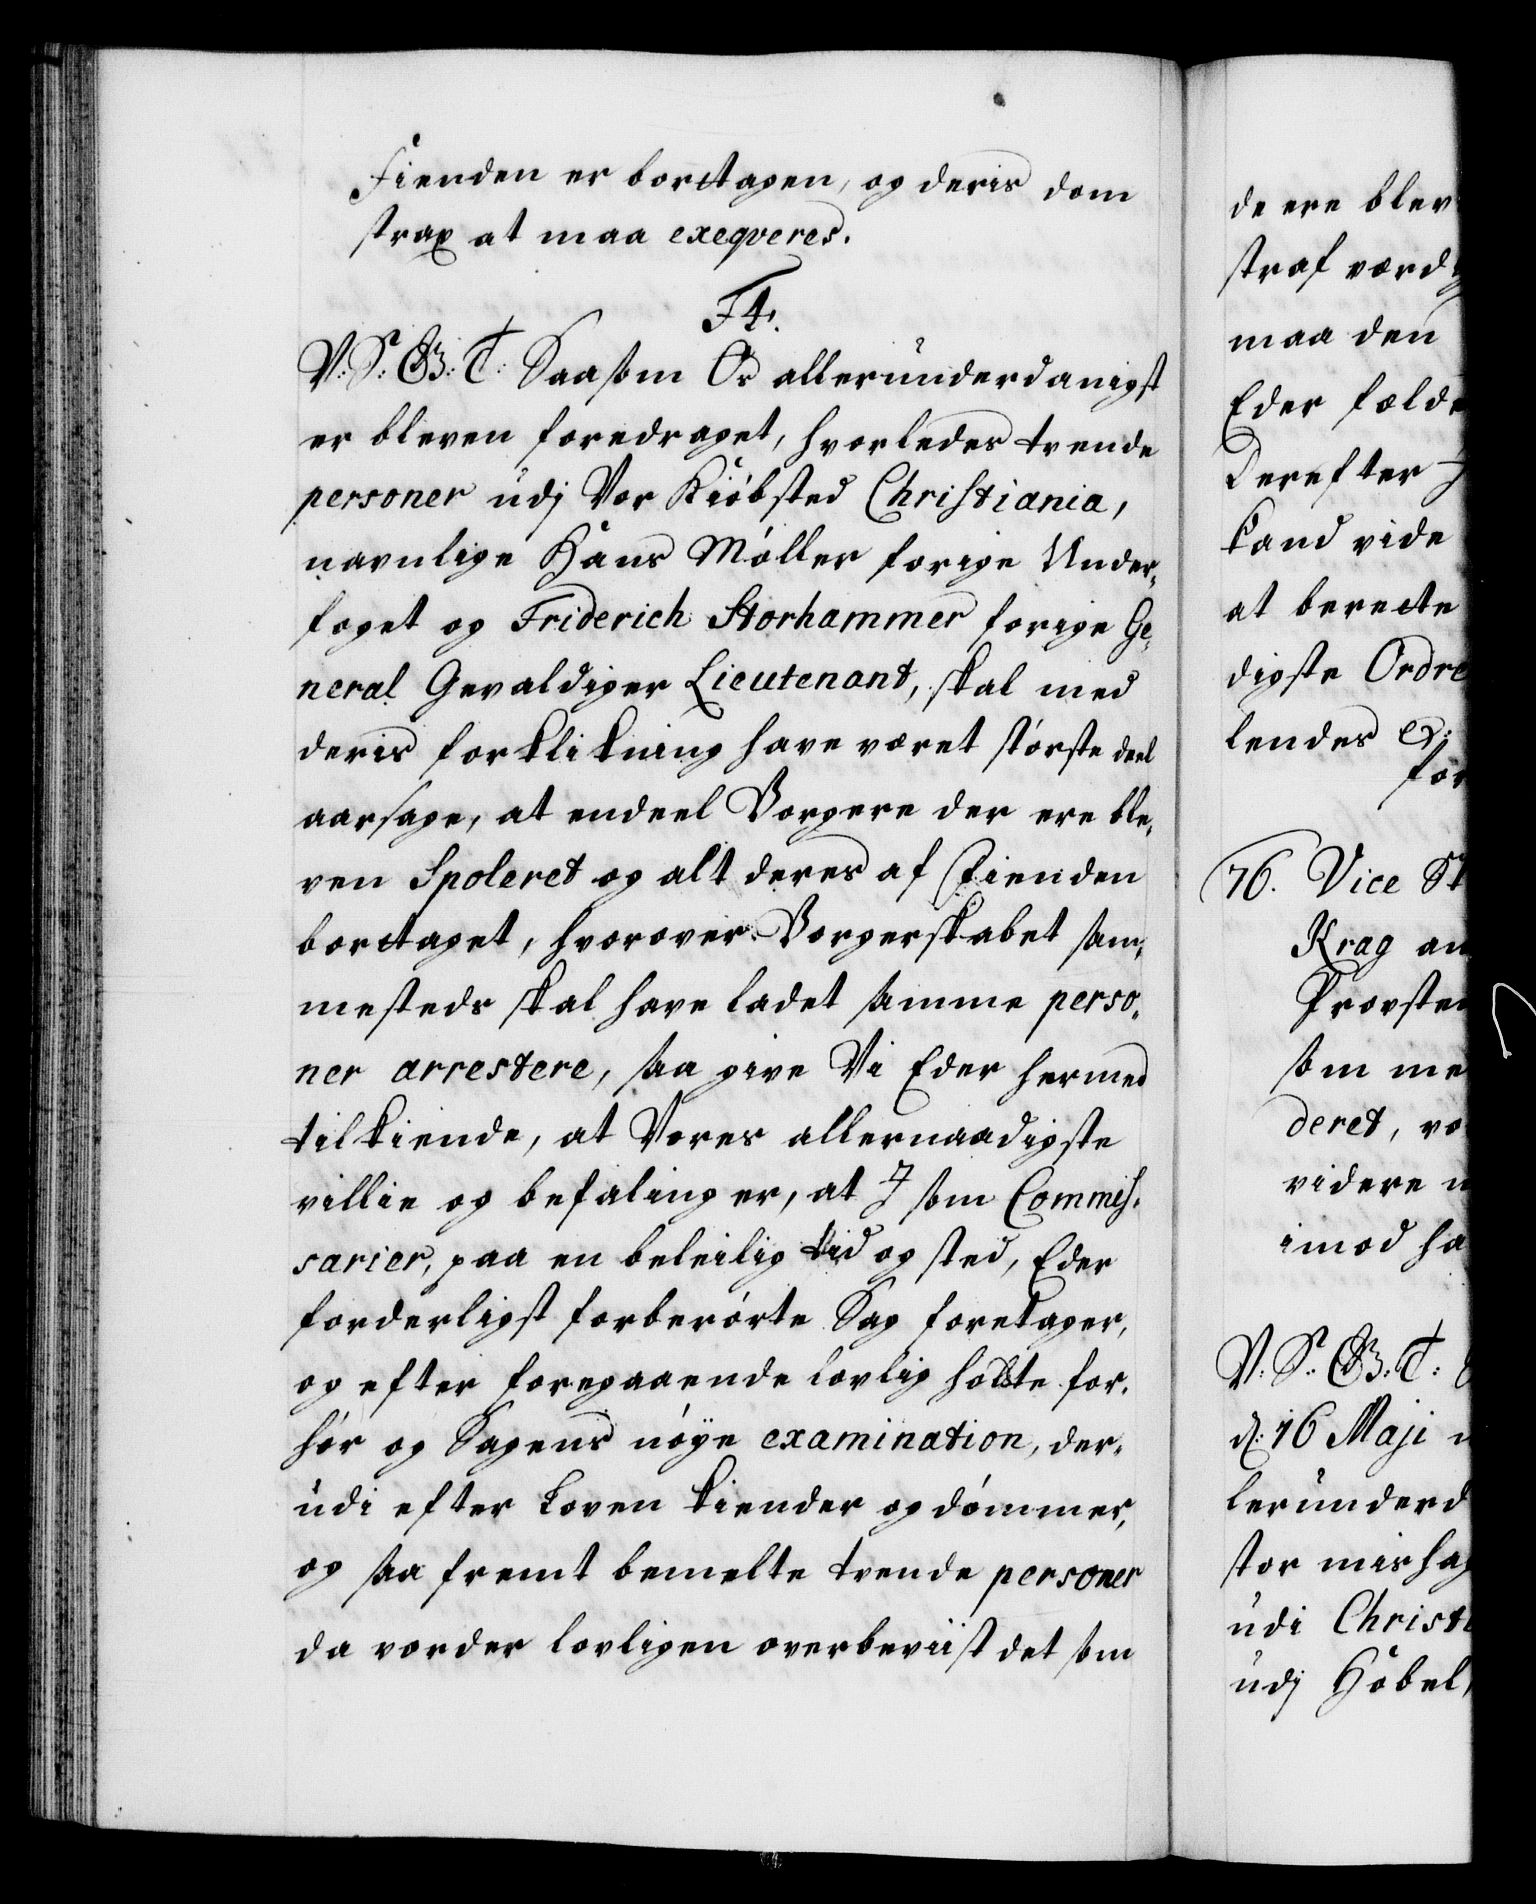 Fienden er borttagen, og deris dom
strax at maa exeqveres.
F4.
V: S: G: T: Saasom Os allerunderdanigst
er bleven foredraget, hvorledes tvende
personer udj Vor Kiöbsted Christiania,
navnlige Hans Møller forige Under-
foget og Friderich Storhammer forige Ge-
neral Gevaldiger Lieutenant, skal med
deris forklikning have været største deel
aarsage, at endeel Borgere der ere ble-
ven Spoleret og alt deres af Fienden
borttaget, hvorover Borgerskabet sam-
mesteds skal have ladet samme perso-
ner arrestere, saa give Vi Eder hermed
tilkiende, at Vores allernaadigste
villie og befaling er, at I som Commis-
sarier, paa en beleilig tid og sted, Eder
forderligst forberørte Sag foretager,
og efter foregaaende lovlig holdte for-
hør og Sagens nøye examination, der-
udi efter Loven kiender og dømmer,
og saa fremt bemelte tvende personer
da vorder lovligen overbeviist det som
de ere blev
straf værd
maa den
Eder fælde
Derefter I
kand vide
at berette
digste Ordre
lendes
for
76. Vice St
Krag an
Provsten
som me
deret, vo
videre
imod ha
V: S: G: T:
d: 16 Maji
lerunderd
stor mishag
udi Christi
udj Høbel